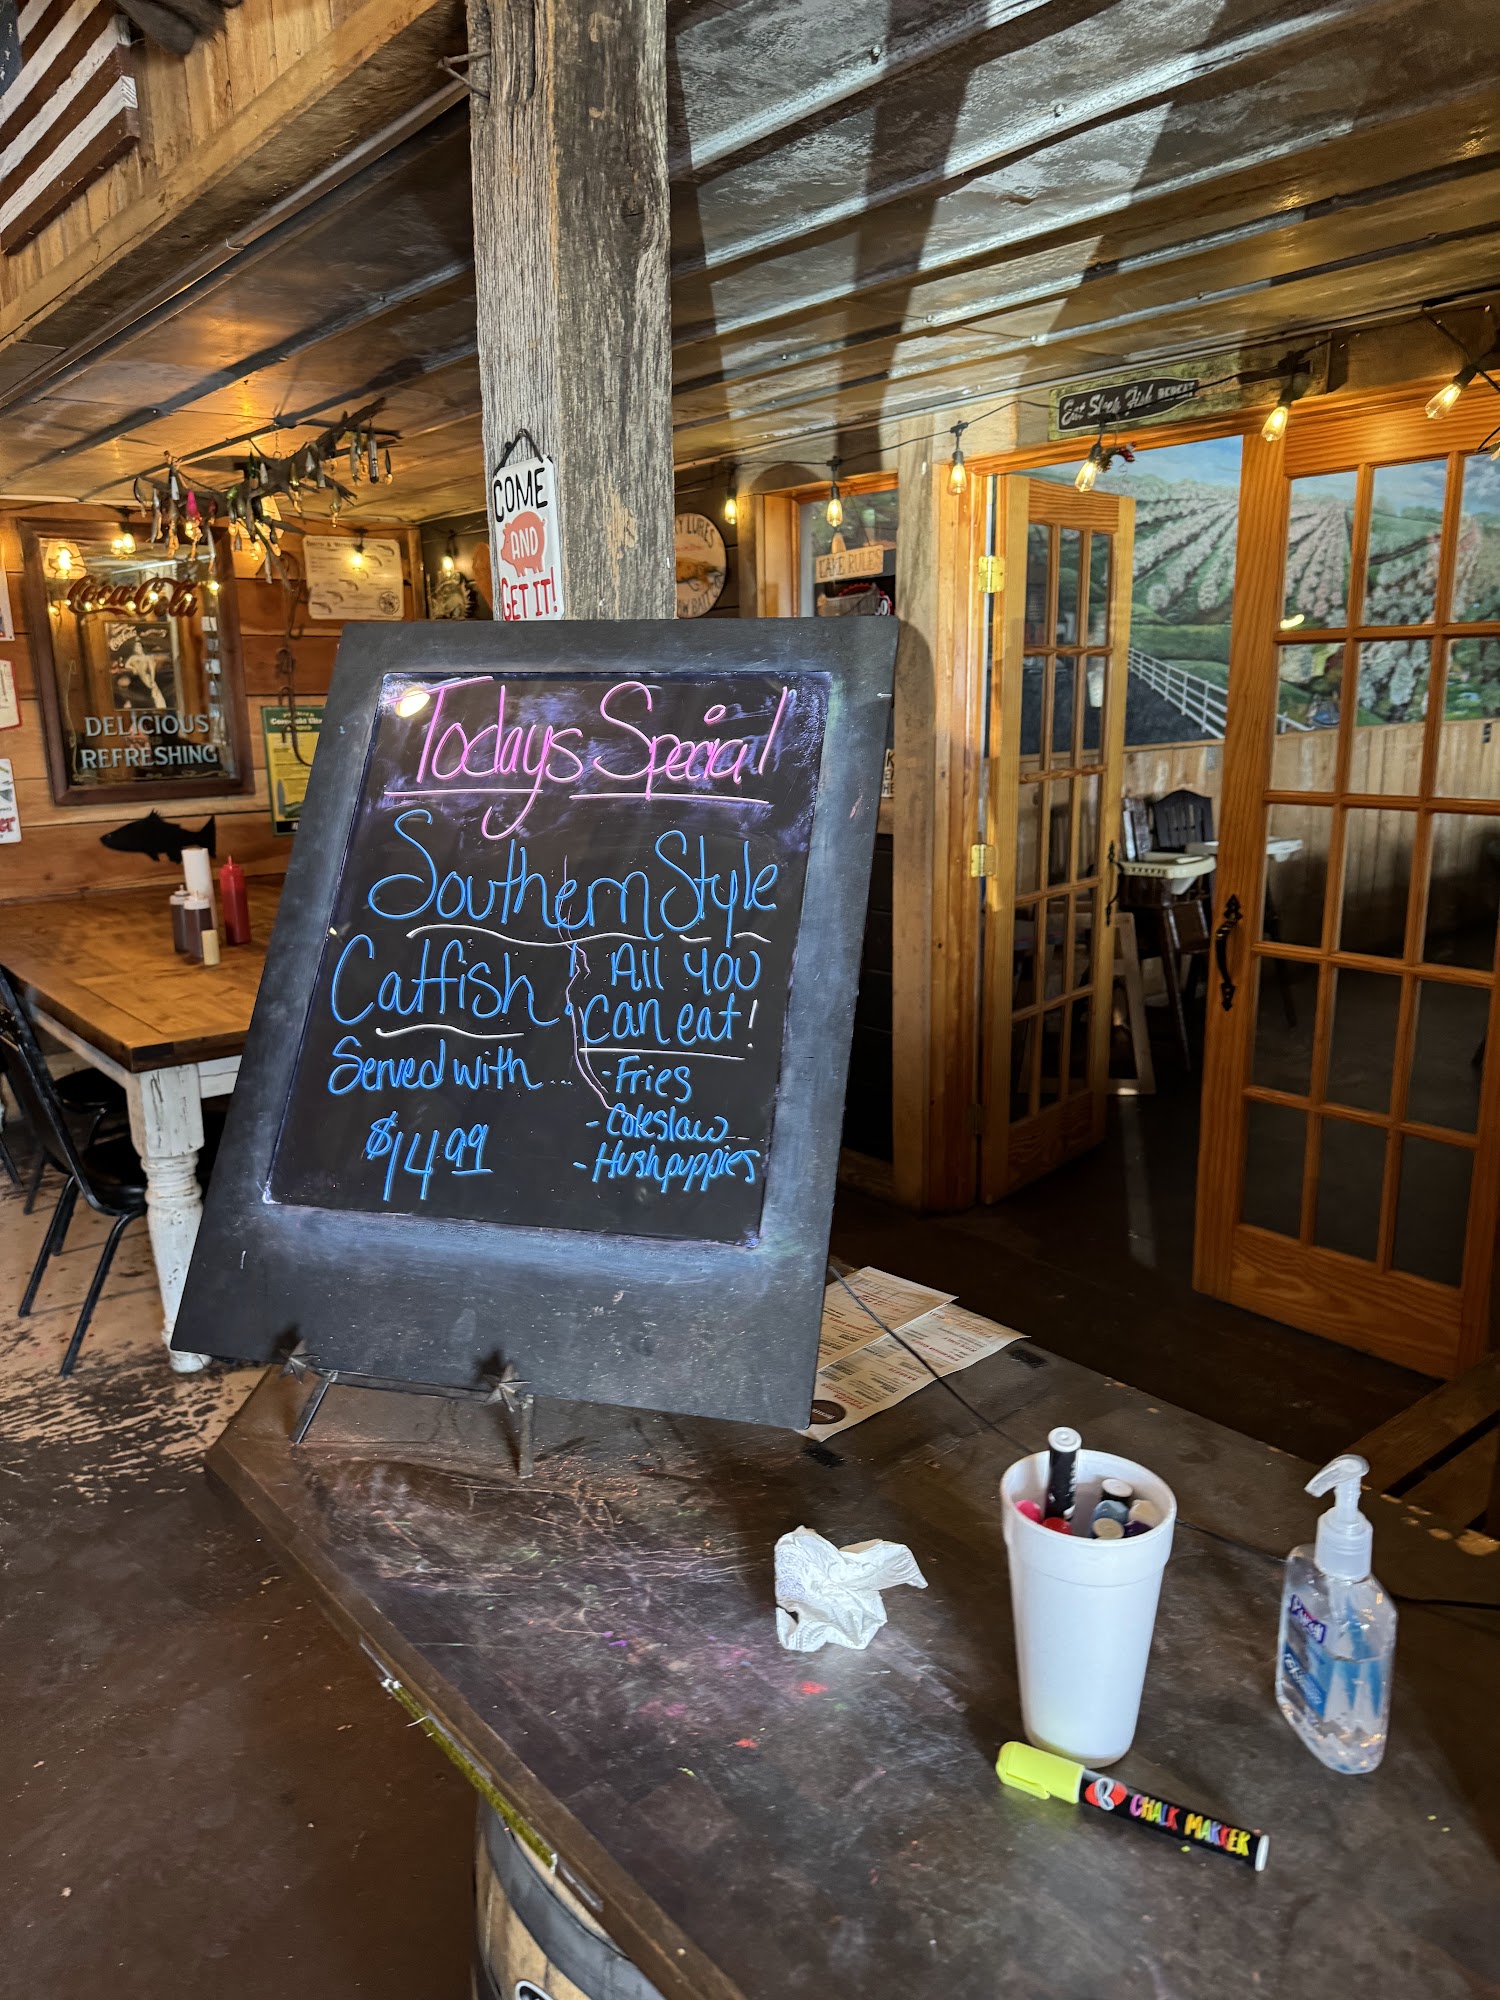 Eat Sleep Fish REPEAT
COME
AND
GET IT!
LAKE RULES
Coca-Cola
DELICIOUS
REFRESHING
Todays Special
Southern Style
Catfish
All you
can eat!
Served with ...
- Fries
- Coleslaw
- Hushpuppies
$14.99
PURELL
CHALK MARKER